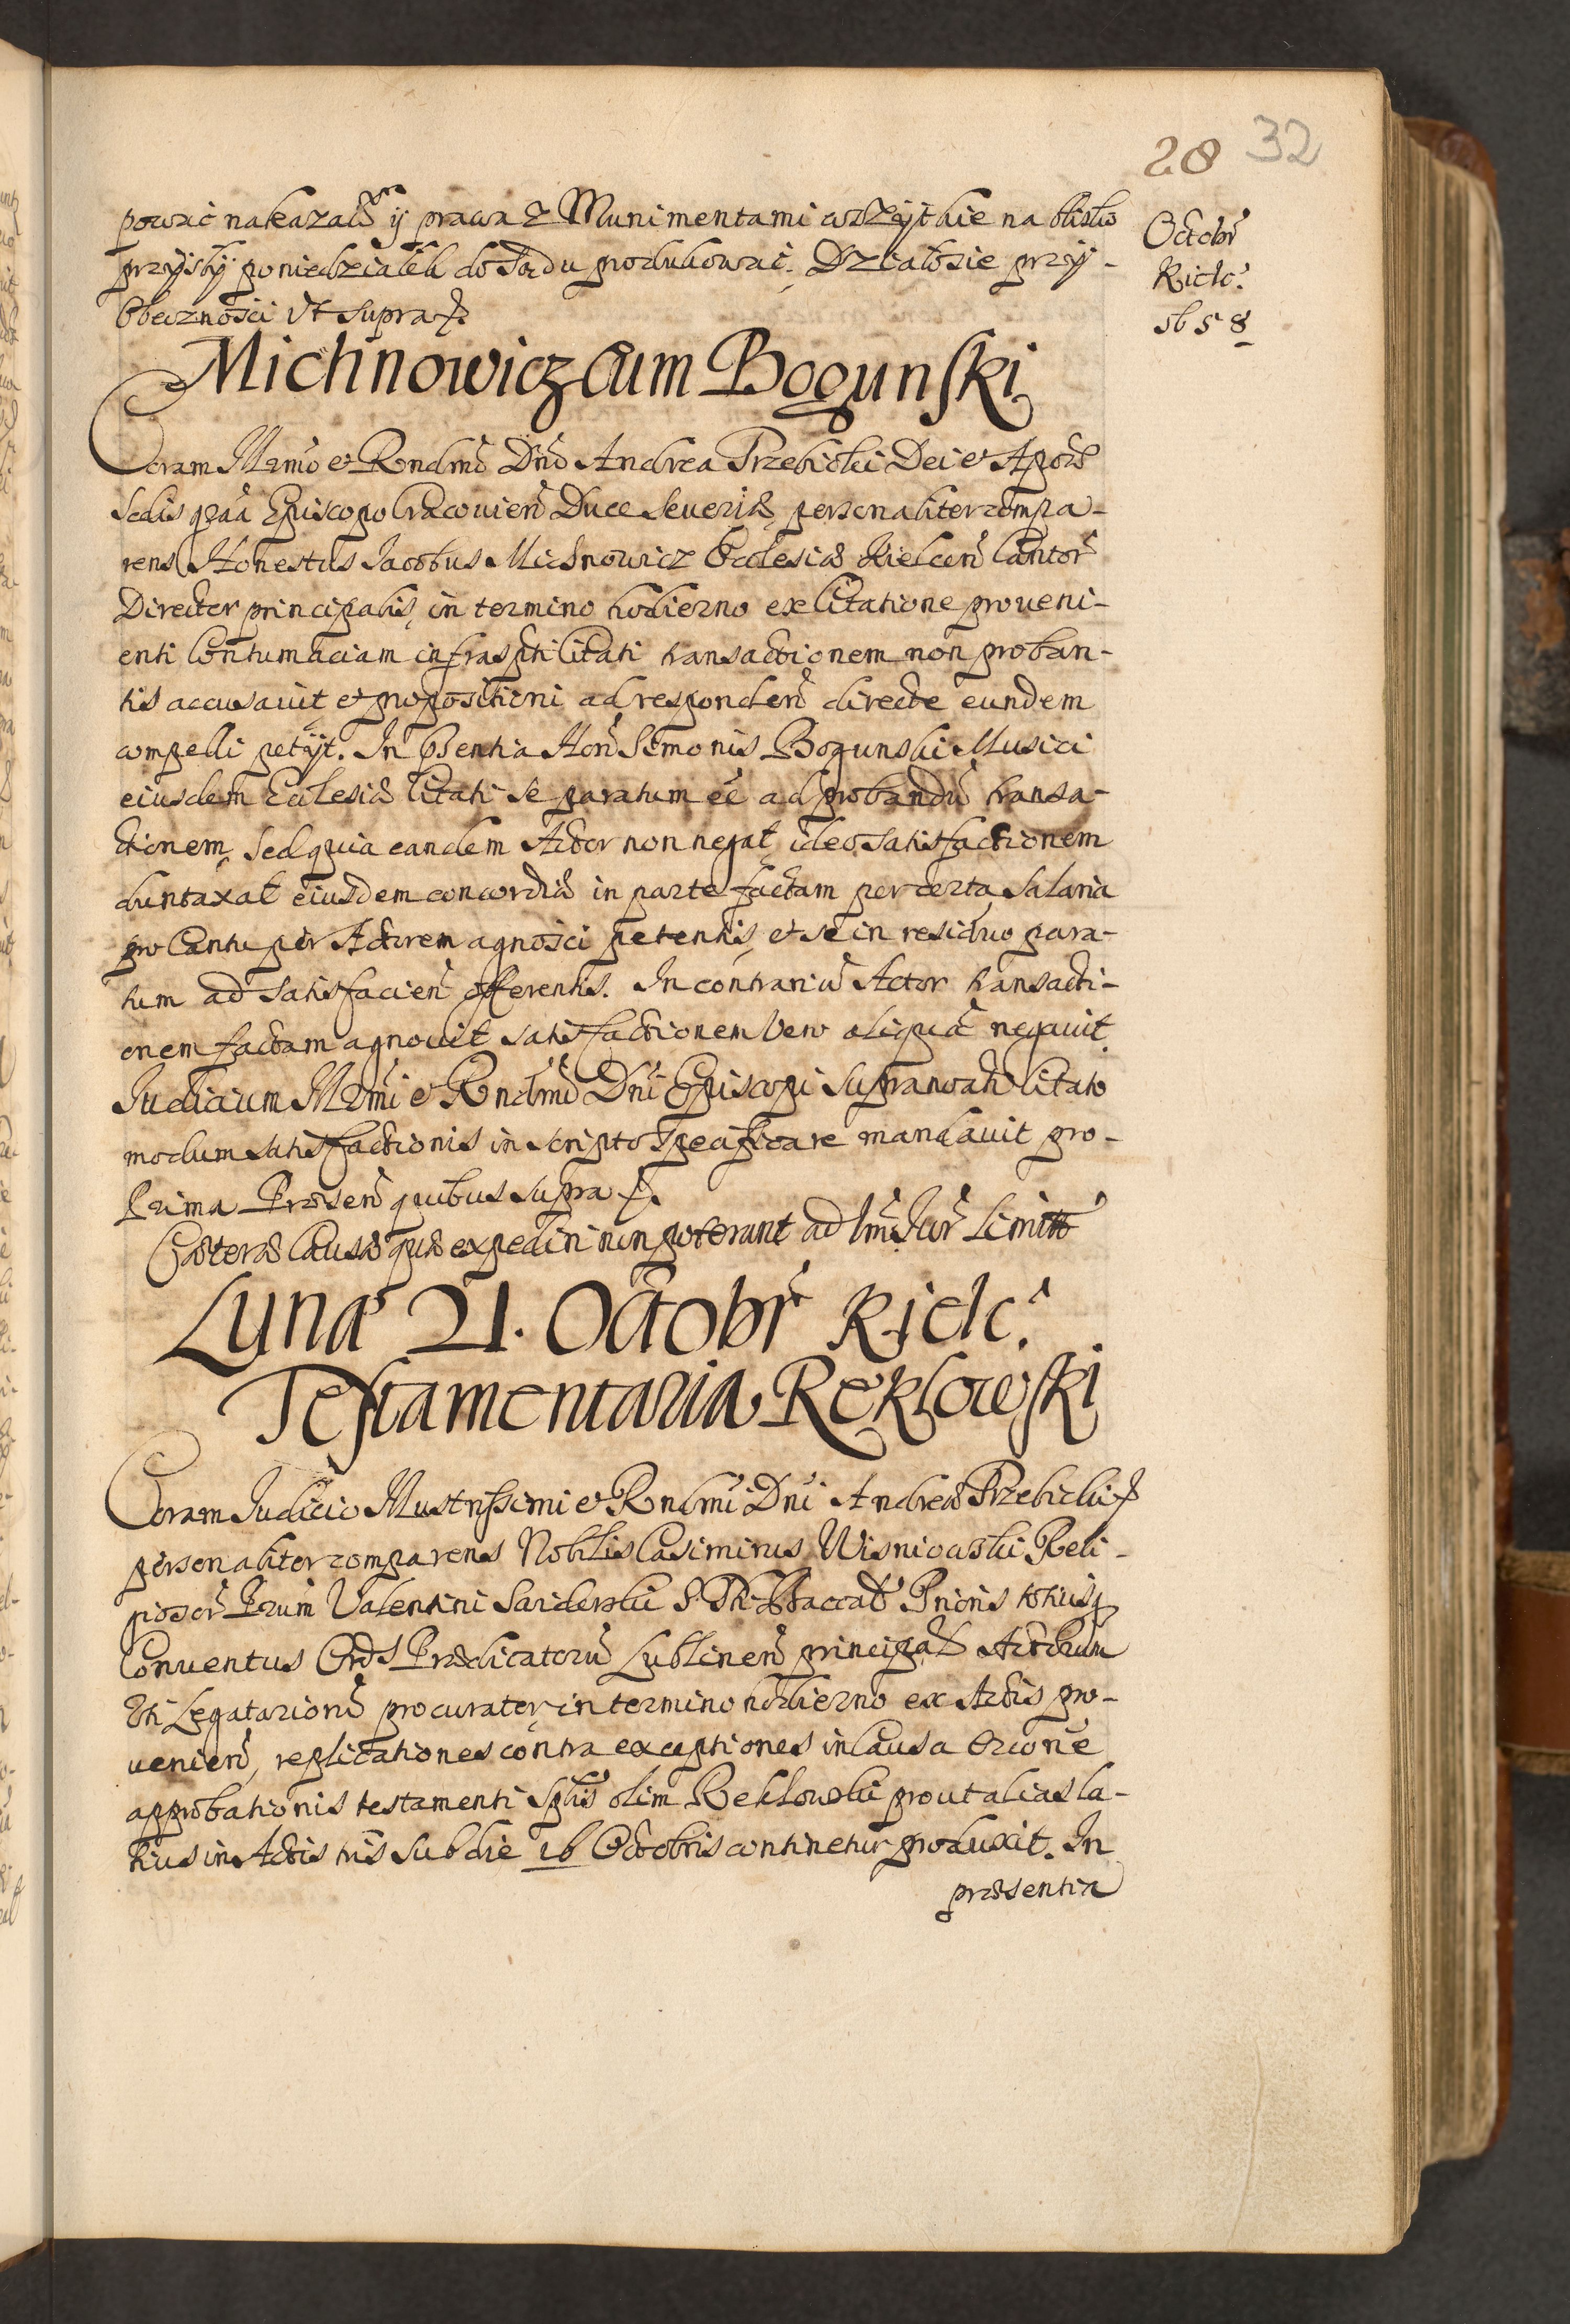 28 32
Octobr
Kielc.
1658
powac nakazał ÿ prawa z Munimentami wszÿtkie na blisko
przÿsłÿ poniedziałek do Sądu produkowac. Działosie przÿ-
obecznosci vt supra
Michnowicz cum Bogunski
Coram Illmo et Rndmo Dno Andrea Trzebicki Dei et Aplcæ
Sedis graa Episcopo Cracovien Duce Severiæ personaliter compa-
rens Honestus Jacobus Michnowicz Ecclesiæ Kielcen Cantor
Director principalis, in termino hodierno ex citatione proveni-
enti Contumaciam infraspti Citati transactionem non proban-
tis accusavit et propositioni ad responden directe eundem
compelli petijt. In psentia Hon Simonis Bogunski Musici
eiusdem Ecclesiæ Citati se paratum ee ad probandu transa-
ctionem, sed quia eandem Actor non negat, ideo satisfactionem
duntaxat eiusdem concordiæ in parte factam per certa Salaria
pro Cantu per Actorem agnosci petentis, et se in residuo para-
tum ad satisfacien offerentis. In contrariu Actor transacti-
onem factam agnovit satisfactionem vero aliqua negavit.
Judicium Illmi et Rndmi Dni Episcopi supranoati Citato
modum satisfactionis in scripto specificare mandavit pro-
prima Præsen quibus supra
Cæteræ Causæ quæ expediri non poterant ad Limitt
Lunæ 21. Octobr Kielc.
Testamentaria Reklowski
Coram Judicio Illustrissimi et Rndmi Dni Andreæ Trzebicki
personaliter comparens Nobilis Casimirus Wisniowski Reli-
giosor Prum Valentini S. Th. Baccal Prioris totiusq
Conventus Ord. Prædicatoru Lublinen principal Actorum
Uti Legatarioru procurator, in termino hodierno ex Actis pro-
venien, replicationes contra exceptiones in Causa one
approbationis testamenti olim Reklowski prout alias la-
tius in Actis sub die 16 Octobris continetur produxit. In
præsentia